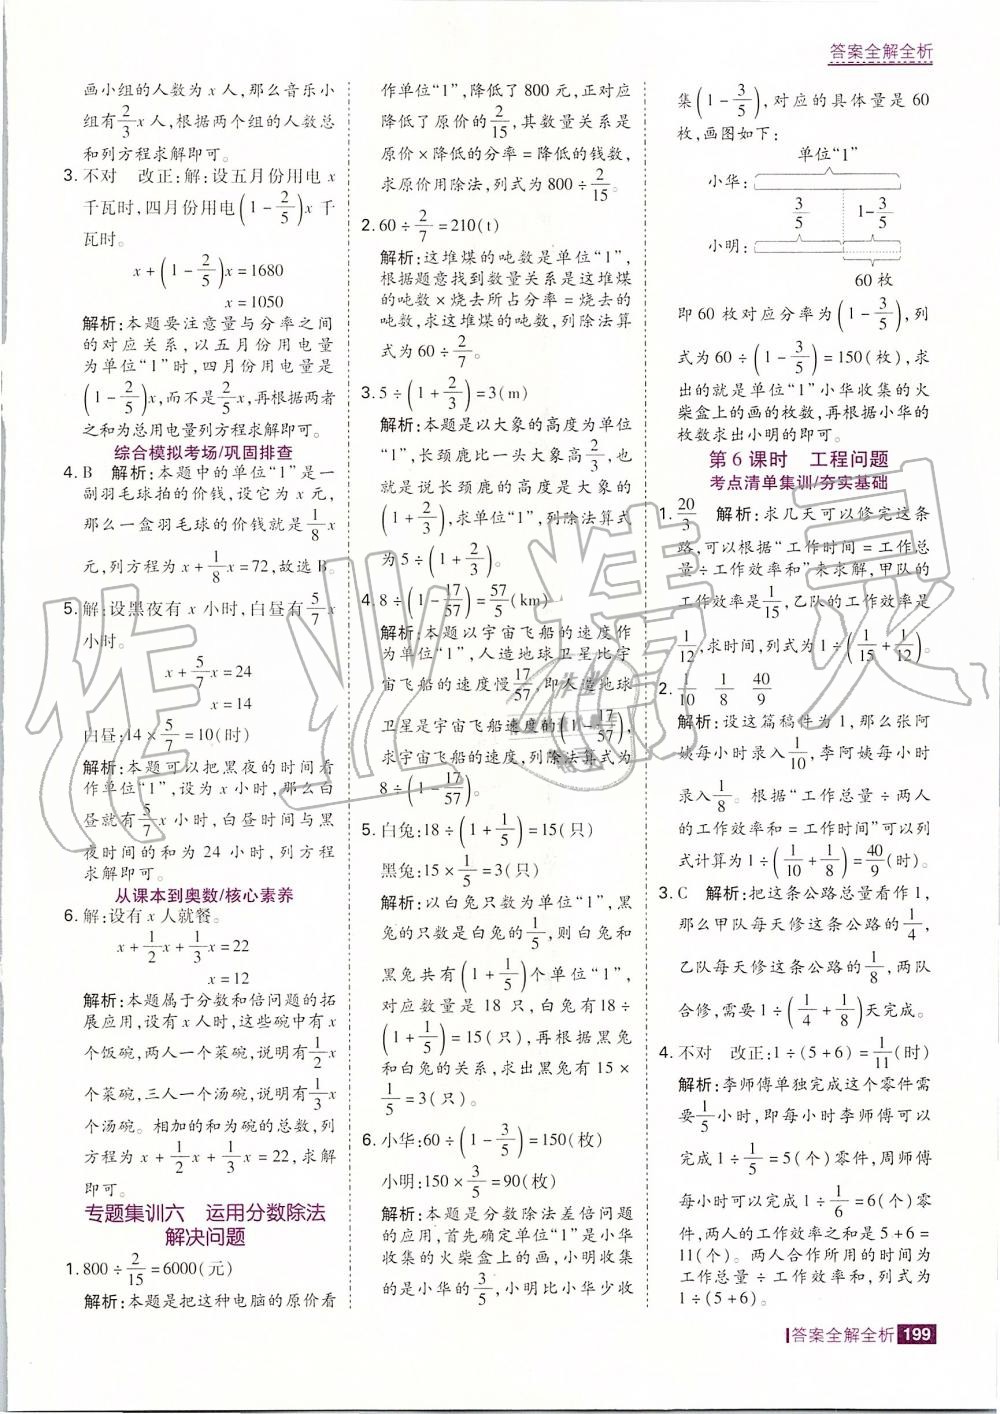 答案全解全析
画小组的人数为 x 人,那么音乐小
组有2/3x 人,根据两个组的人数总
和列方程求解即可。
3. 不对 改正:解:设五月份用电 x
千瓦时,四月份用电(1-2/5)x 千
瓦时。
x+(1-2/5)x=1680
x=1050
解析:本题要注意量与分率之间
的对应关系,以五月份用电量
为单位“1”时,四月份用电量是
(1-2/5)x,而不是2/5x,再根据两者
之和为总用电量列方程求解即可。
综合模拟考场/巩固排查
4. B 解析:本题中的单位“1”是一
副羽毛球拍的价钱,设它为 x 元,
那么一盒羽毛球的价钱就是1/8x
元,列方程为 x+1/8x=72,故选 B。
5. 解:设黑夜有 x 小时,白昼有5/7x
小时。
x+5/7x=24
x=14
白昼:14×5/7=10(时)
解析:本题可以把黑夜的时间看
作单位“1”,设为 x 小时,那么白
昼就有5/7x 小时,白昼时间与黑
夜时间的和为 24 小时,列方程
求解即可。
从课本到奥数/核心素养
6. 解:设有 x 人就餐。
x+1/2x+1/3x=22
x=12
解析:本题属于分数和倍问题的拓
展应用,设有 x 人时,这些碗中有 x
个饭碗,两人一个菜碗,说明有1/2x
个菜碗,三人一个汤碗,说明有1/3x
个汤碗。相加的和为碗的总数,列
方程为 x+1/2x+1/3x=22,求解
即可。
专题集训六 运用分数除法
解决问题
1. 800÷2/15=6000(元)
解析:本题是把这种电脑的原价看
作单位“1”,降低了 800 元,正对应
降低了原价的2/15,其数量关系是
原价×降低的分率=降低的钱数,
求原价用除法,列式为 800÷2/15。
2. 60÷2/7=210(t)
解析:这堆煤的吨数是单位“1”,
根据题意找到数量关系是这堆煤
的吨数×烧去所占分率=烧去的
吨数,求这堆煤的吨数,列除法算
式为 60÷2/7。
3. 5÷(1+2/3)=3(m)
解析:本题是以大象的高度为单位
“1”,长颈鹿比大象高2/3,也就
是说长颈鹿的高度是大象的
(1+2/3),求单位“1”,列除法算式
为 5÷(1+2/3)。
4. 8÷(1-17/57)=57/5(km)
解析:本题以宇宙飞船的速度作
为单位“1”,人造地球卫星比宇
宙飞船的速度慢17/57,即人造地球
卫星是宇宙飞船速度的(1-17/57),
求宇宙飞船的速度,列除法算式为
8÷(1-17/57)。
5. 白兔:18÷(1+1/5)=15(只)
黑兔:15×1/5=3(只)
解析:以白兔只数为单位“1”,黑
兔的只数是白兔的1/5,则白兔和
黑兔共有(1+1/5)个单位“1”,
对应数量是 18 只,白兔有 18÷
(1+1/5)=15(只),再根据黑兔
和白兔的关系,求出黑兔有 15×
1/5=3(只)。
6. 小华:60÷(1-3/5)=150(枚)
小明:150×3/5=90(枚)
解析:题是分数除法差倍问题
的应用,首先确定单位“1”是小华
收集的火柴盒上的画,小明收集
的是小华的3/5,小明比小华少收
集(1-3/5),对应的具体量是 60
枚,画图如下:
单位“1”
小华:
3/5 1-3/5
小明:
60 枚
即 60 枚对应分率为(1-3/5),列
式为 60÷(1-3/5)=150(枚),求
出的就是单位“1”小华收集的火
柴盒上的画的枚数,再根据小华的
枚数求出小明的即可。
第 6 课时 工程问题
考点清单集训/夯实基础
1. 20/3 解析:求几天可以修完这条
路,可以根据“工作时间=工作总
量÷工作效率和”来求解,甲队的
工作效率是1/15,乙队的工作效率是
1/12,求时间,列式为 1÷(1/15+1/12)。
2. 1/10 1/8 40/9
解析:设这篇稿件为 1,那么张阿
姨每小时录入1/10,李阿姨每小时
录入1/8。根据“工作总量÷两人
的工作效率和=工作时间”可以列
式计算为 1÷(1/10+1/8)=40/9(时)。
3. C 解析:把这条公路总量看作 1,
那么甲队每天修这条公路的1/4,
乙队每天修这条公路的1/8,两队
合修,需要 1÷(1/4+1/8)天完成。
4. 不对 改正:1÷(5+6)=1/11(时)
解析:李师傅单独完成这个零件需
要1/5小时,即每小时李师傅可以
完成 1÷1/5=5(个)零件,周师傅
每小时可以完成 1÷1/6=6(个)零
件,两人的工作效率之和是 5+6=
11(个)。两人合作所用的时间为
工作总量÷工作效率和,列式为
1÷(5+6)。
答案全解全析 199
作业精灵